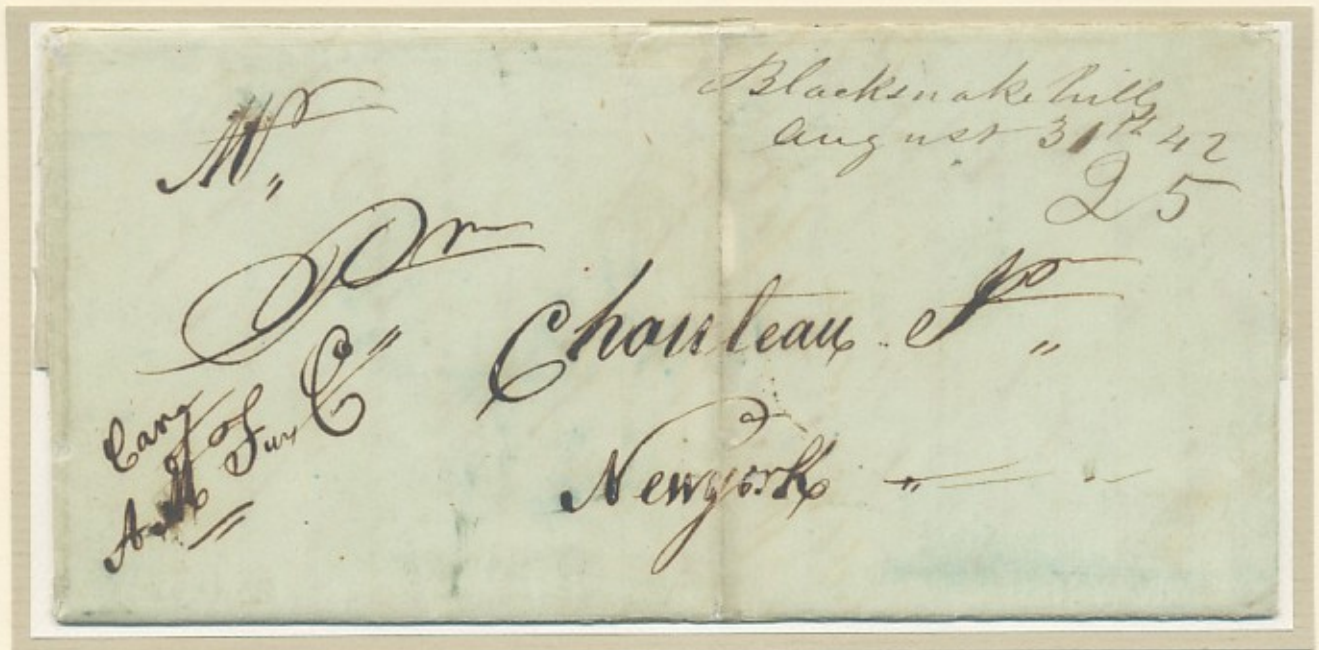 Blacksnake hills
august 31th 42
25
Mr
Pre Chouteau Jr
Newyork
Care
Am Fur C